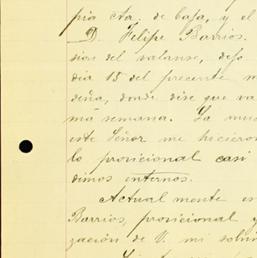 pia cta. de baja, y el
D. Felipe Barrios.
sion del valanso, dejo
dia 15 del presente m
deña, donde dise que va
ma semana. La mue
este Señor me hicieron
lo provicional casi
dimos internos.
Actual mente en
Barrios, provicional y
zación de V. mi sobri